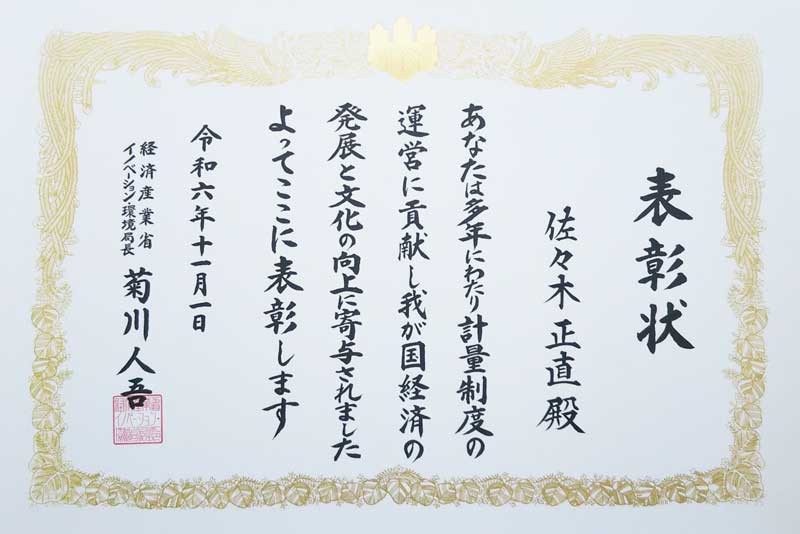 表彰状
佐々木正直殿
あなたは多年にわたり計量制度の
運営に貢献し我が国経済の
発展と文化の向上に寄与されました
よってここに表彰します
令和六年十一月一日
経済産業省
イノベーション・環境局長
菊川人吾